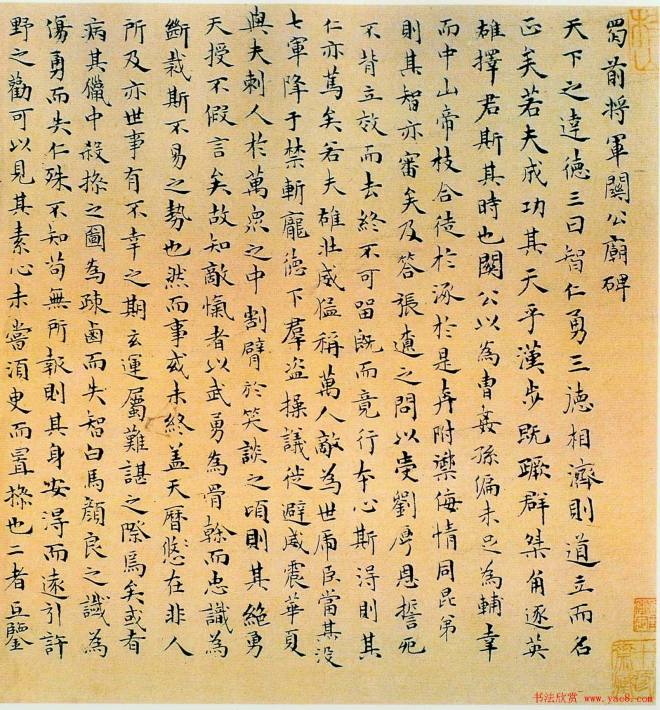 蜀前将軍關公廟碑
天下之達徳三曰智仁勇三徳相濟則道立而名
正矣若夫成功其天乎漢步既蹶群桀角逐英
雄擇君斯其時也關公以為曹姦孫偏未足為輔幸
而中山帝枝合徒於涿於是奔附禦侮情同昆弟
則其智亦審矣及答張遼之問以受劉厚恩誓死
不背立效而去終不可留既而竟行本心斯得則其
仁亦篤矣若夫雄壯威猛稱萬人敵為世虎臣當其沒
七軍降于禁斬龐徳下羣盜操議徙避威震華夏
與夫刺人於萬眾之中割臂於笑談之頃則其絶勇
天授不假言矣故知敵愾者以武勇為骨榦而忠識為
斷裁斯不易之勢也然而事或未終盖天曆悠在非人
所及亦世事有不幸之期玄運屬難諶之際焉矣或有
病其獵中殺操之圖為疎鹵而失智白馬顔良之識為
傷勇而失仁殊不知苟無所報則其身安得而遠引許
野之勸可以見其素心未嘗須臾而置操也二者互鑒
书法欣赏 www.yac8.com